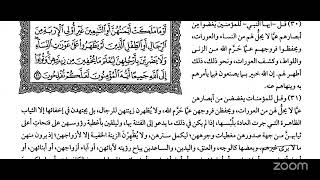 أَوْ مَا مَلَكَتْ أَيْمَانُهُنَّ أَوِ التَّابِعِينَ غَيْرِ أُولِي الْإِرْبَةِ مِنَ
الرِّجَالِ أَوِ الطِّفْلِ الَّذِينَ لَمْ يَظْهَرُوا عَلَى عَوْرَاتِ النِّسَاءِ
وَلَا يَضْرِبْنَ بِأَرْجُلِهِنَّ لِيُعْلَمَ مَا يُخْفِينَ مِن زِينَتِهِنَّ وَتُوبُوا
إِلَى اللَّهِ جَمِيعًا أَيُّهَ الْمُؤْمِنُونَ لَعَلَّكُمْ تُفْلِحُونَ
(٣٠) قل -أيها النبي- للمؤمنين يغضوا من
أبصارهم عمَّا لا يحلُّ لهم من النساء والعورات،
ويحفظوا فروجهم عمَّا حَرَّم الله من الزنى
واللواط، وكشف العورات، ونحو ذلك، ذلك
أطهر لهم. إن الله خبير بما يصنعون فيما يأمرهم
به وينهاهم عنه.
(٣١) وقل للمؤمنات يغضضن من أبصارهن
عمَّا لا يحلُّ لهن من العورات، ويحفظن فروجهن عمَّا حَرَّم الله، ولا يُظهرن زينتهن للرجال، بل يجتهدن في إخفائها إلا الثياب
الظاهرة التي جرت العادة بلُبْسها، إذا لم يكن في ذلك ما يدعو إلى الفتنة بها، وليلقين بأغطية رؤوسهن على فتحات أعلى
ثيابهن مِن جهة صدورهن مغطيات وجوههن؛ ليكمل سترهن، ولا يُظْهِرْنَ الزينة الخفية إلا لأزواجهن؛
zoom